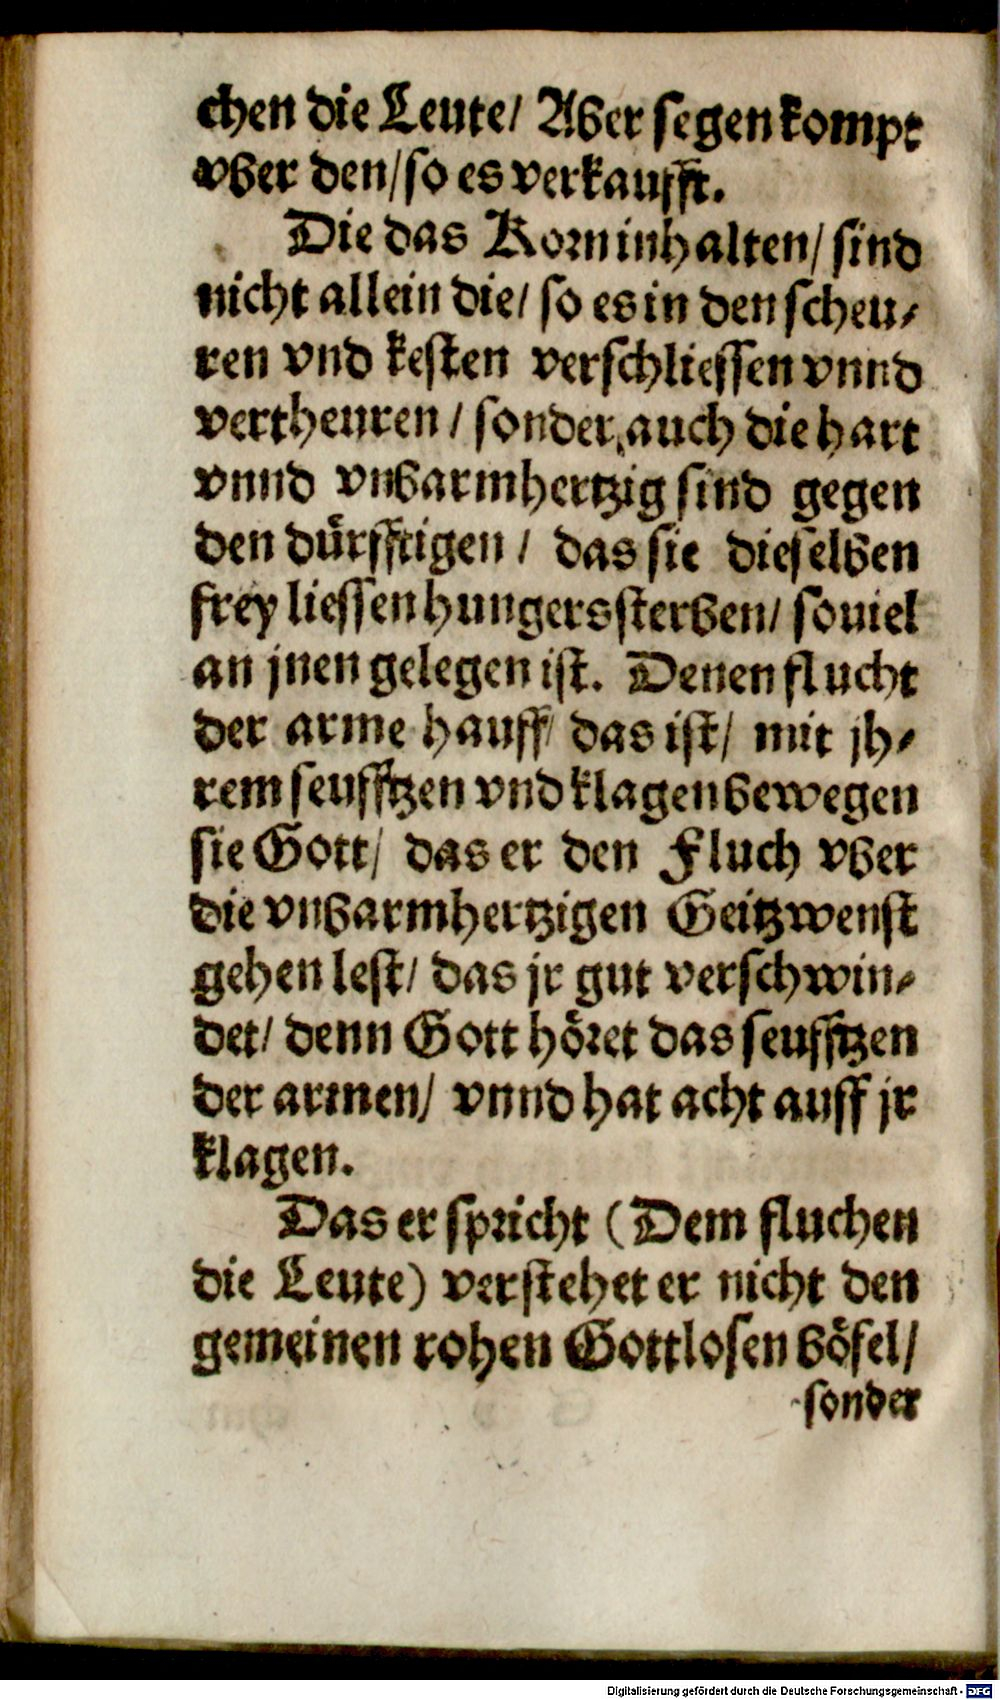 chen die Leute/ Aber segen kompt
vber den/ so es verkaufft.
Die das Korn inhalten/ sind
nicht allein die/ so es in den scheu⸗
ren vnd kesten verschliessen vnnd
vertheuren / sonder auch die hart
vnnd vnbarmhertzig sind gegen
den dürfftigen / das sie dieselben
frey liessen hungers sterben/ souiel
an jnen gelegen ist. Denen flucht
der arme hauff/ das ist/ mit jh⸗
rem seufftzen vnd klagen bewegen
sie Gott/ das er den Fluch vber
die vnbarmhertzigen Geitzwenst
gehen lest/ das jr gut verschwin⸗
det/ denn Gott höret das seufftzen
der armen/ vnnd hat acht auff jr
klagen.
Das er spricht (Dem fluchen
die Leute) verstehet er nicht den
gemeinen rohen Gottlosen böfel/
sonder
Digitalisierung gefördert durch die Deutsche Forschungsgemeinschaft - DFG